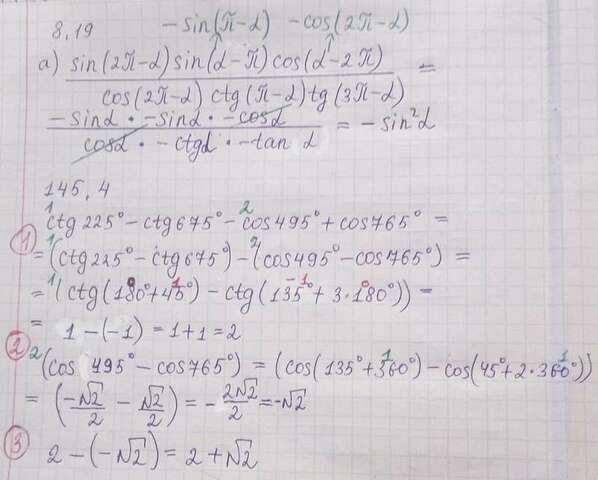 8,19 -sin(π-α) -cos(2π-α)
а) sin(2π-α) sin(α-π) cos(α-2π) =
cos(2π-α) ctg(π-α) tg(3π-α)
-sinα · -sinα · -cosα = -sin²α
cosα · -ctgα · -tan α
145,4
1 2
ctg 225° - ctg 675° - cos 495° + cos 765° =
1 = 1(ctg 225° - ctg 675°) - 2(cos 495° - cos 765°) =
0 1 -1 0
= 1(ctg(180°+45°) - ctg(135° + 3·180°)) =
= 1 - (-1) = 1+1 = 2
2 2(cos 495° - cos 765°) = (cos(135° + 360°) - cos(45° + 2·360°))
1 1
= (-√2/2 - √2/2) = - 2√2/2 = -√2
3 2 - (-√2) = 2 + √2